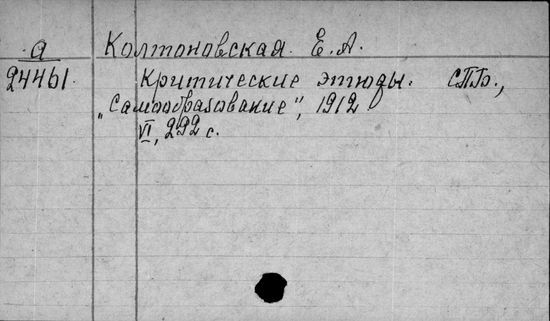 а Колтоновская. Е. А.
24461. Критические этюды. СПБ.,
„Самообразование", 1912
VI, 292 с.